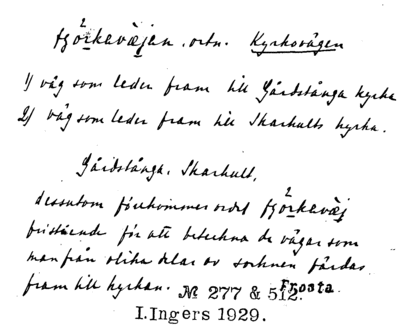 fjö̀rkavä̀jan. ortn. Kyrkovägen
1) väg som leder fram till Gårdstånga kyrka
2) väg som leder fram till Skarhults kyrka.
Gårdstånga, Skarhult,
dessutom förekommer ordet fjö̀rkavä̀j
fristående för att beteckna de vägar som
man från olika delar av socknen färdas
fram till kyrkan. Frosta.
№ 277 & 512.
I.Ingers 1929.